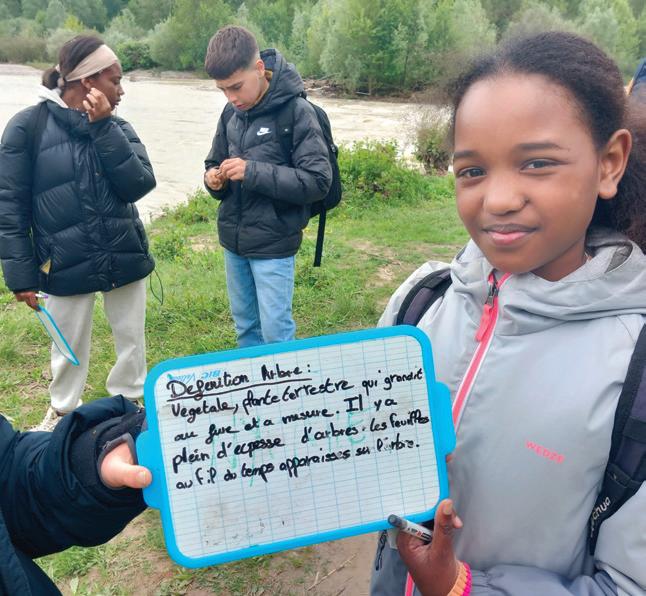 BIC Velleda
Defenition Arbre :
Vegetale, plante terrestre qui grandit
au fure et a mesure. Il y a
plein d'ecpesse d'arbres. les feuilles
au f.p du temps apparaisses su l'arbre.
WEDZE